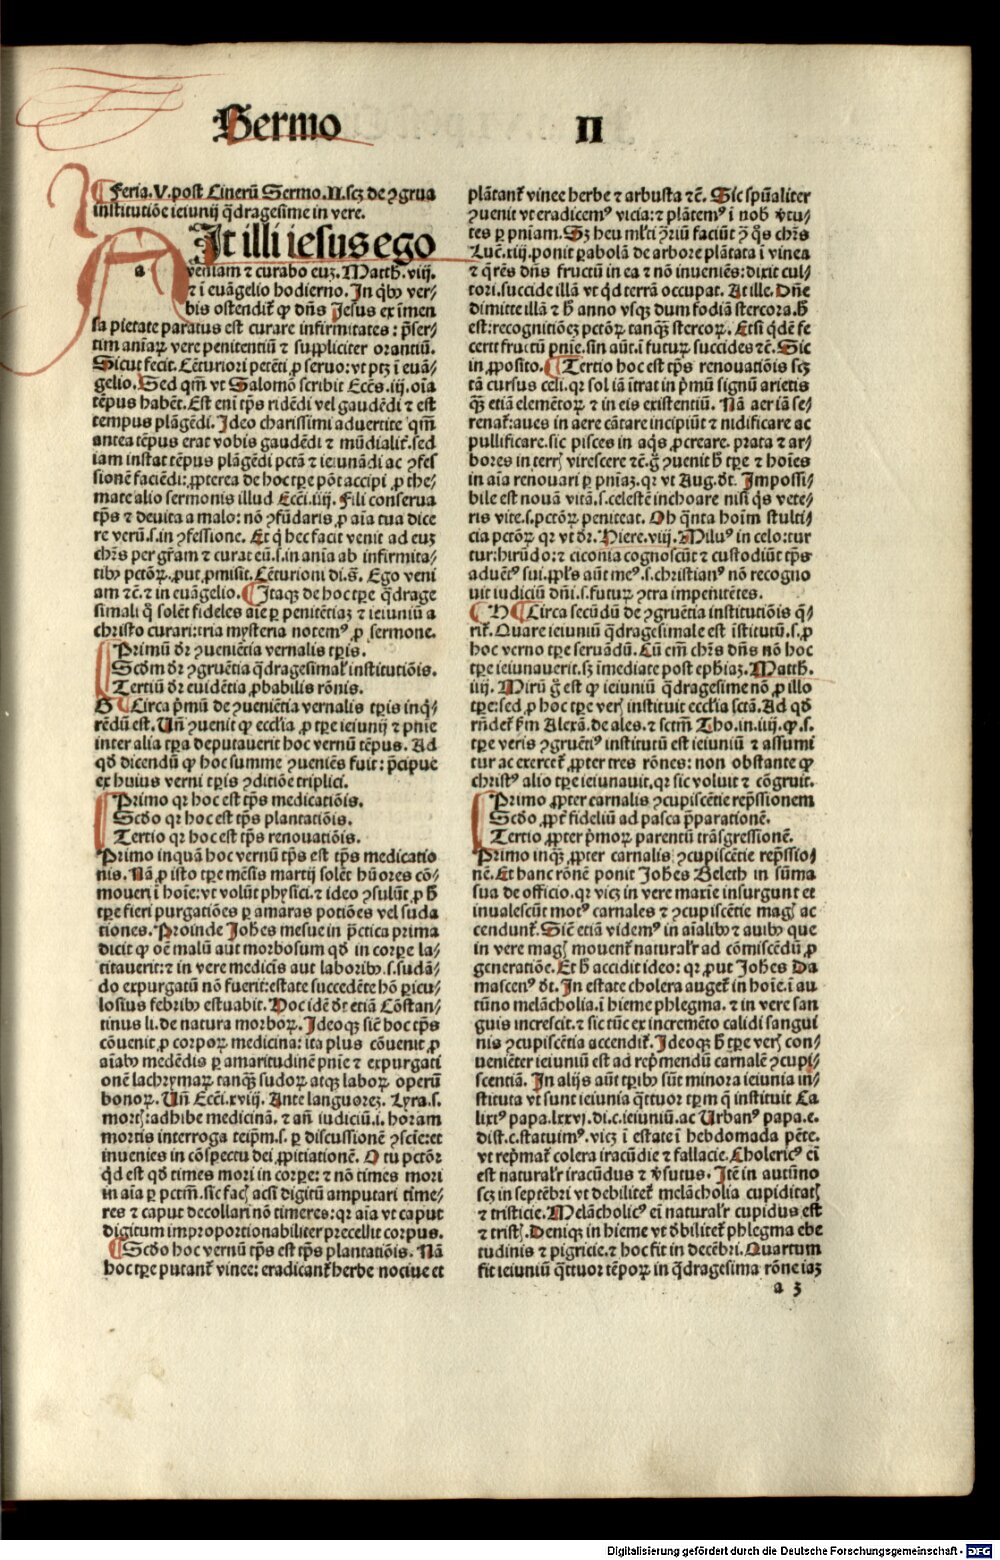 Sermo II
Feria.V.post Cinerū Sermo.II.scꝫ de ꝯgrua
institutiōe ieiunij q̄dragesime in vere.
It illi iesus ego
a veniam ⁊ curabo euꝫ. Matth.viij.
⁊ ī euāgelio hodierno. In qͥbꝰ ver⸗
bis ostendiť ꝙ dn̄s Jesus ex īmen
sa pietate paratus est curare infirmitates: p̄ser⸗
tim aniaꝝ vere penitentiū ⁊ suppliciter orantiū.
Sicut fecit. Cēturiori petēti ꝓ seruo: vt ptꝫ ī euā⸗
gelio. Sed qm̄ vt Salomō scribit Eccēs.iij. oīa
tēpus habēt. Est enī tp̄s ridēdi vel gaudēdi ⁊ est
tempus plāgēdi. Ideo charissimi aduertite qm̄
antea tēpus erat vobis gaudēdi ⁊ mūdialiť. sed
iam instat tēpus plāgēdi pctā ⁊ ieiunādi ac ꝯfes
sionē faciēdi: ꝓpterea de hoc tp̄e pōt accipi ꝓ the⸗
mate alio sermonis illud Ecci.iiij. Fili conserua
tp̄s ⁊ deuita a malo: nō ꝯfūdaris ꝓ aīa tua dice
re verū.s.in ꝯfessione. Et q̇ hec facit venit ad euꝫ
chr̄s per gr̄am ⁊ curat eū.s.in anīa ab infirmita⸗
tibꝰ pctōꝝ. ꝓut ꝓmisit. Cēturioni di.s̄. Ego veni
am ⁊c̄. ⁊ in euāgelio. Itaqꝫ de hoc tp̄e q̄drage
simali q̇ solēt fideles aīe ꝑ penitētiaꝫ ⁊ ieiuniū a
christo curari: tria mysteria notemꝰ ꝓ sermone.
Primū dr̄ ꝯueniētia vernalis tp̄is.
Scd̄m dr̄ ꝯgruētia q̄dragesimaľ institutiōis.
Tertiū dr̄ euidētia ꝓbabilis rōnis.
B Circa p̄mū de ꝯueniētia vernalis tp̄is inq̇⸗
rēdū est. Un̄ ꝯuenit ꝙ ecclīa ꝓ tp̄e ieiunij ⁊ pn̄ie
inter alia tp̄a deputauerit hoc vernū tēpus. Ad
qd̄ dicendū ꝙ hoc summe ꝯueniēs fuit: p̄cipue
ex huius verni tp̄is ꝯditiōe triplici.
Primo qr hoc est tp̄s medicatiōis.
Scd̄o qr hoc est tp̄s plantatiōis.
Tertio qr hoc est tp̄s renouatiōis.
Primo inquā hoc vernū tp̄s est tp̄s medicatio
nis. Nā ꝓ isto tp̄e mēsis martij solēt hūores cō⸗
moueri ī hoīe: vt volūt physici. ⁊ ideo ꝯsulūt ꝓ h̄
tp̄e fieri purgatiōes ꝑ amaras potiōes vel suda
tiones. Proinde Joh̄es mesue in p̄ctica prima
dicit ꝙ oē malū aut morbosum qd̄ in corpe la⸗
titauerit: ⁊ in vere medicīs aut laboribꝰ.s.sudā⸗
do expurgatū nō fuerit: estate succedēte hō ꝑicu⸗
losius febribꝰ estuabit. Hoc idē dt̄ etiā Cōstan⸗
tinus li. de natura morboꝝ. Ideoqꝫ siē hoc tp̄s
cōuenit ꝓ corpoꝝ medicina: ita plus cōuenit ꝓ
aīabꝰ medēdis ꝑ amaritudinē pn̄ie ⁊ expurgati
onē lachrymaꝝ tanqꝫ sudoꝝ atqꝫ laboꝝ operū
bonoꝝ. Un̄ Ecci.xviij. Ante languoreꝫ. Lyra.s.
mortꝭ: adhibe medicinā. ⁊ añ iudiciū.i. horam
mortis interroga teip̄m.s. ꝑ discussionē ꝯscie: et
inuenies in cōspectu dei ꝓpitiationē. O tu pctōr
qd̄ est qd̄ times mori in corpe: ⁊ nō times mori
in aīa ꝑ pctm̄. sic facꝭ acsi digitū amputari time⸗
res ⁊ caput decollari nō timeres: qr aīa vt caput
digitum improportionabiliter precellit corpus.
Scd̄o hoc vernū tp̄s est tp̄s plantatiōis. Nā
hoc tp̄e putanť vinee: eradicanť herbe nociue et
plātanť vinee herbe ⁊ arbusta ⁊c̄. Sic spūaliter
ꝯuenit vt eradicemꝰ vicia: ⁊ plātemꝰ ī nob̄ vtu⸗
tes ꝑ pn̄iam. Sꝫ heu ml̄ti ꝯriū faciūt ꝯ qͦs chr̄s
Luc̄.xiij. ponit ꝑabolā de arbore plātata ī vinea
⁊ q̄rēs dn̄s fructū in ea ⁊ nō inueniēs: dixit cul⸗
tori. succide illā vt qd̄ terrā occupat. At ille. Dn̄e
dimitte illā ⁊ h̄ anno vsqꝫ dum fodiā stercora. h̄
est: recognitiōeꝫ pctōꝝ tanqꝫ stercoꝝ. Etsi q̇dē fe
cerit fructū pn̄ie. sin aūt. ī futuꝝ succides ⁊c̄. Sic
in ꝓposito. Tertio hoc est tp̄s renouatiōis scꝫ
tā cursus celi. qr sol iā ītrat in p̄mū signū arietis
qꝫ etiā elementoꝝ ⁊ in eis existentiū. Nā aer iā se⸗
renať: aues in aere cātare incipiūt ⁊ nidificare ac
pullificare. sic pisces in aq̇s ꝓcreare. prata ⁊ ar⸗
bores in terrꝭ virescere ⁊c̄. g̊ ꝯuenit h̄ tp̄e ⁊ hoīes
in aīa renouari ꝑ pn̄iaꝫ. qr vt Aug. dt̄. Impossi⸗
bile est nouā vitā.s. celestē inchoare nisi q̇s vete⸗
ris vite.s. pctōꝝ peniteat. Oh q̄nta hoīm stulti⸗
cia pctōꝝ qr vt dr̄. Hiere.viij. Miluꝰ in celo: tur
tur: hirūdo: ⁊ ciconia cognoscūt ⁊ custodiūt tp̄s
aduētꝰ sui. ppl̄s aūt meꝰ.s. christianꝰ nō recogno
uit iudiciū dn̄i.s. futuꝝ ꝯtra impenitētes.
Circa secūdū de ꝯgruētia institutiōis q̄⸗
riť. Quare ieiuniū q̄dragesimale est īstitutū.s. ꝓ
hoc verno tp̄e seruādū. Cū em̄ chr̄s dn̄s nō hoc
tp̄e ieiunauerit. sꝫ īmediate post epħiaꝫ. Matth.
iiij. Mirū g̊ est ꝙ ieiuniū q̄dragesime nō ꝓ illo
tp̄e: sed ꝓ hoc tp̄e verꝭ instituit ecclīa sctā. Ad qd̄
rn̄deť ẜm Alexā. de ales. ⁊ sctm̄ Tho.in.iiij. ꝙ.s.
tp̄e veris ꝯgruētiꝰ institutū est ieiuniū ⁊ assumi
tur ac exerceť ꝓpter tres rōnes: non obstante ꝙ
christꝰ alio tp̄e ieiunauit. qr sic voluit ⁊ cōgruit.
Primo ꝓpter carnalis ꝯcupiscētie rep̄ssionem
Scd̄o ꝓpť fideliū ad pasca p̄parationē.
Tertio ꝓpter p̄moꝝ parentū trāsgressionē.
Primo inqꝫ ꝓpter carnalis ꝯcupiscētie rep̄ssio⸗
nē. Et hanc rōnē ponit Joh̄es Beleth in sūma
sua de officio. qr vicꝫ in vere maxīe insurgunt et
inualescūt motꝰ carnales ⁊ ꝯcupiscētie magꝭ ac
cendunť. Sicē etiā videmꝰ in aīalibꝰ ⁊ auibꝰ que
in vere magꝭ mouenť naturalr̄ ad cōmiscēdū ꝓ
generatiōe. Et h̄ accidit ideo: qr ꝓut Joh̄es Da
mascenꝰ dt̄. In estate cholera augeť in hoīe. ī au
tūno melācholia. ī hieme phlegma. ⁊ in vere san
guis increscit. ⁊ sic tūc ex incremēto calidi sangui
nis ꝯcupiscētia accendiť. Ideoqꝫ h̄ tp̄e verꝭ con⸗
ueniēter ieiuniū est ad rep̄mendū carnalē ꝯcupi⸗
scentiā. In alijs aūt tp̄ibꝰ sūt minora ieiunia in⸗
stituta vt sunt ieiunia q̄ttuor tp̄m q̄ instituit Ca
lixtꝰ papa.lxxvj.di.c.ieiuniū. ac Urbanꝰ papa.e.
dist.c.statuimꝰ. vicꝫ ī estate ī hebdomada pēte.
vt rep̄mať colera iracūdie ⁊ fallacie. Cholericꝰ em̄
est naturalr̄ iracūdus ⁊ vsutus. Itē in autūno
scꝫ in septēbri vt debiliteť melācholia cupiditatꝭ
⁊ tristicie. Melācholicꝰ em̄ naturalr̄ cupidus est
⁊ tristꝭ. Deniqꝫ in hieme vt dbiliteť phlegma ebe
tudinis ⁊ pigricie. ⁊ hoc fit in decēbri. Quartum
fit ieiuniū q̄ttuor tēpoꝝ in q̄dragesima rōne iaꝫ
a 3
Digitalisierung gefördert durch die Deutsche Forschungsgemeinschaft - DFG